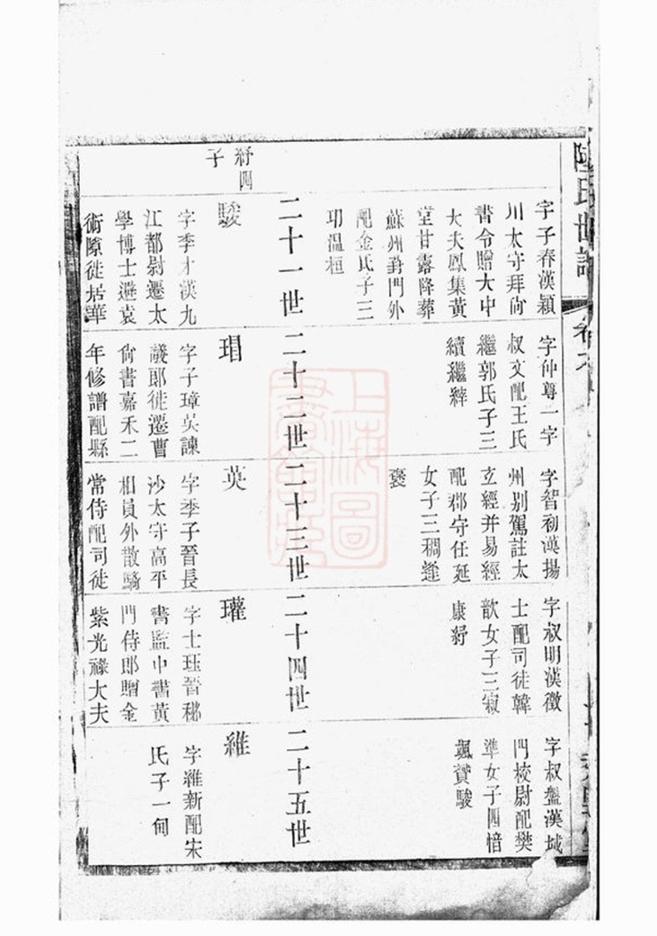 陸氏世譜
字子春漢潁
川太守拜尚
書令贈大中
大夫鳳集黃
堂甘露降葬
蘇州葑門外
配金氏子三
邛温桓
字仲尊一字
叔文配王氏
繼郭氏子三
續繼
字智初漢揚
州別駕註太
玄經并易經
配郡守任延
女子三稠逢
褒
字叔明漢徵
士配司徒韓
歆女子三寂
康紓
字叔盤漢城
門校尉配樊
準女子四愔
颯賛駿
二十一世
二十二世
二十三世
二十四世
二十五世
紓四
子
駿
字季才漢九
江都尉遷太
學博士避袁
術隙徙居華
瑁
字子璋吳諫
議郎徙遷曹
尚書嘉禾二
年修譜配縣
英
字季子晉長
沙太守高平
相員外散騎
常侍配司徒
瓘
字士珪晉秘
書監中書黃
門侍郎贈金
紫光祿大夫
維
字維新配宋
氏子一甸